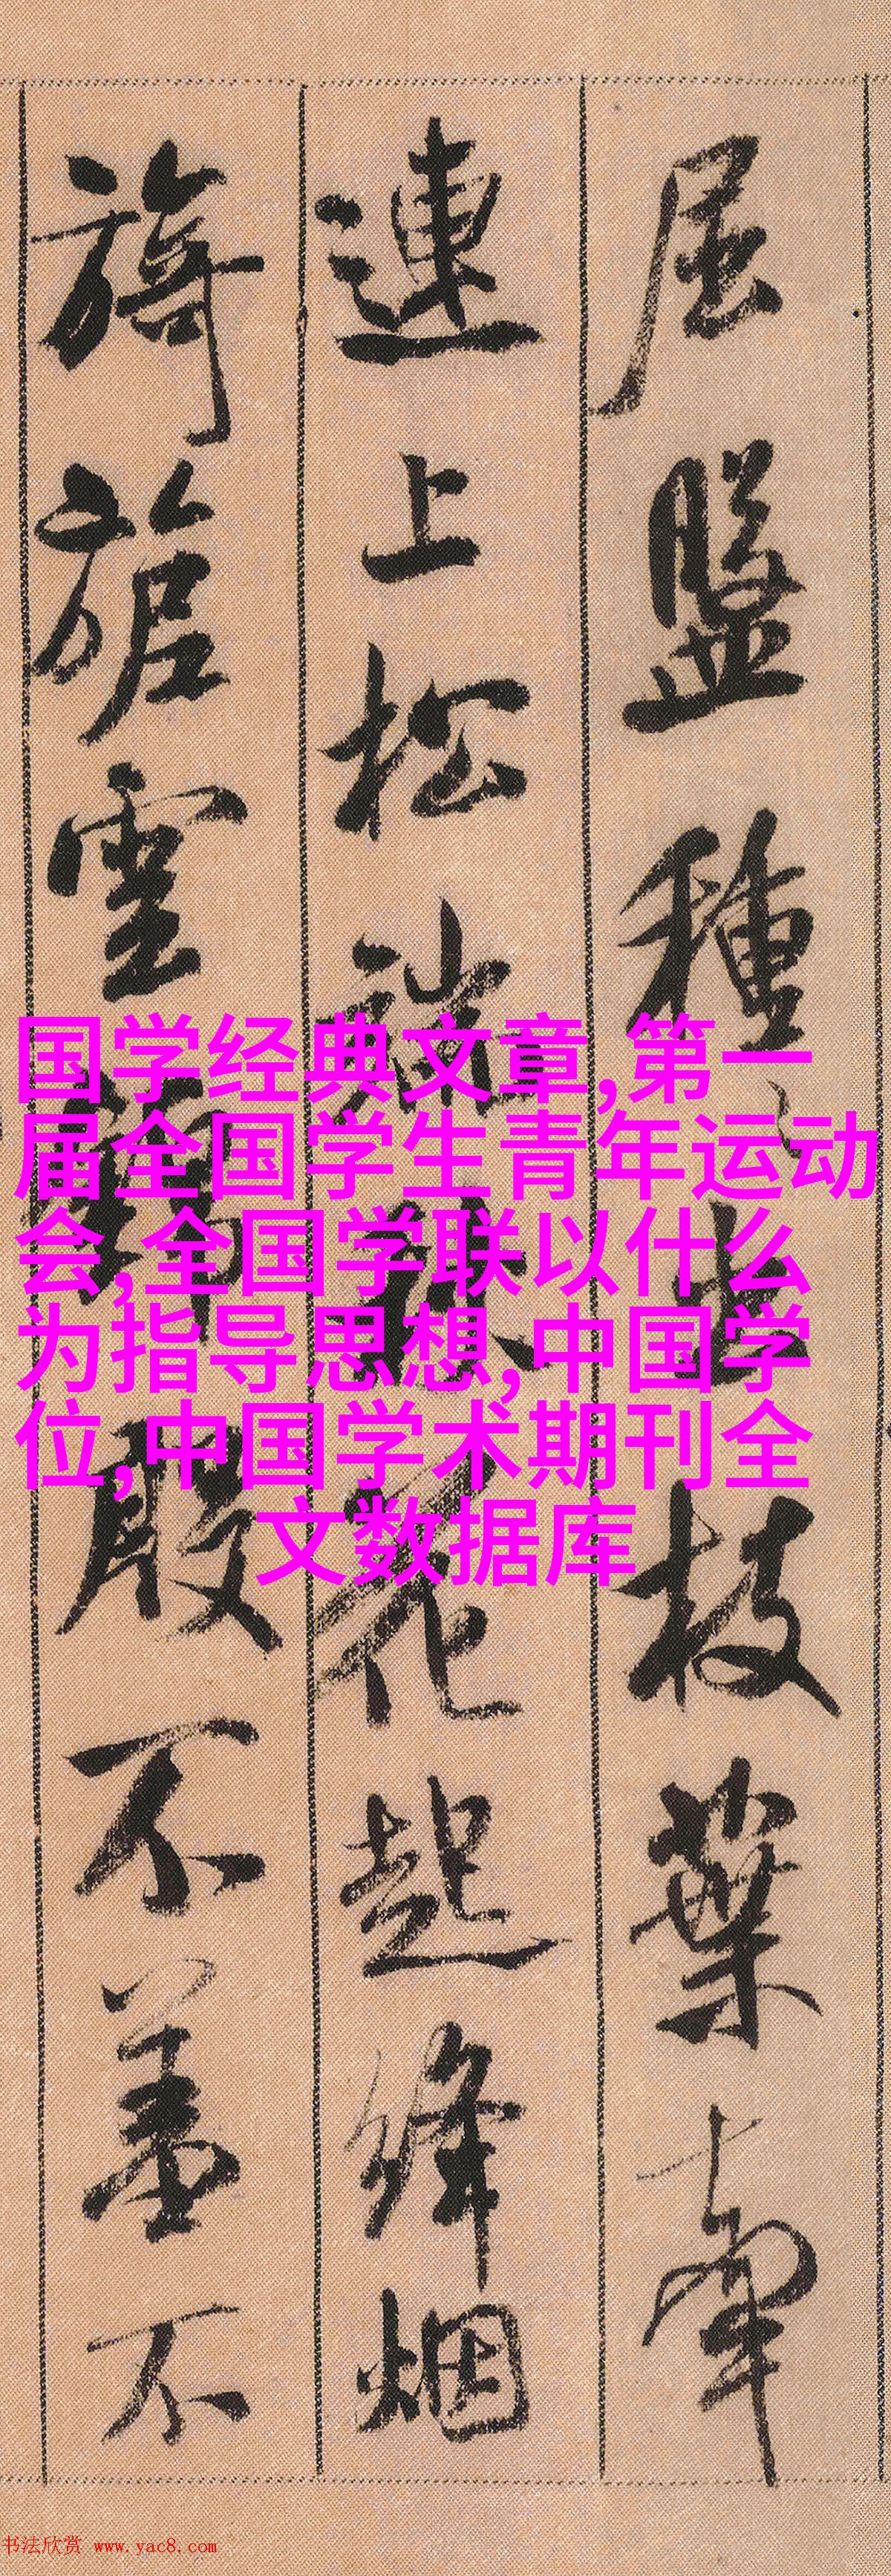 屈盤種〻出枝葉牽
連上松端秋花起絳烟
旖旎雲錦殷不羞不
国学经典文章,第一
届全国学生青年运动
会,全国学联以什么
为指导思想,中国学
位,中国学术期刊全
文数据库
书法欣赏 www.yac8.com